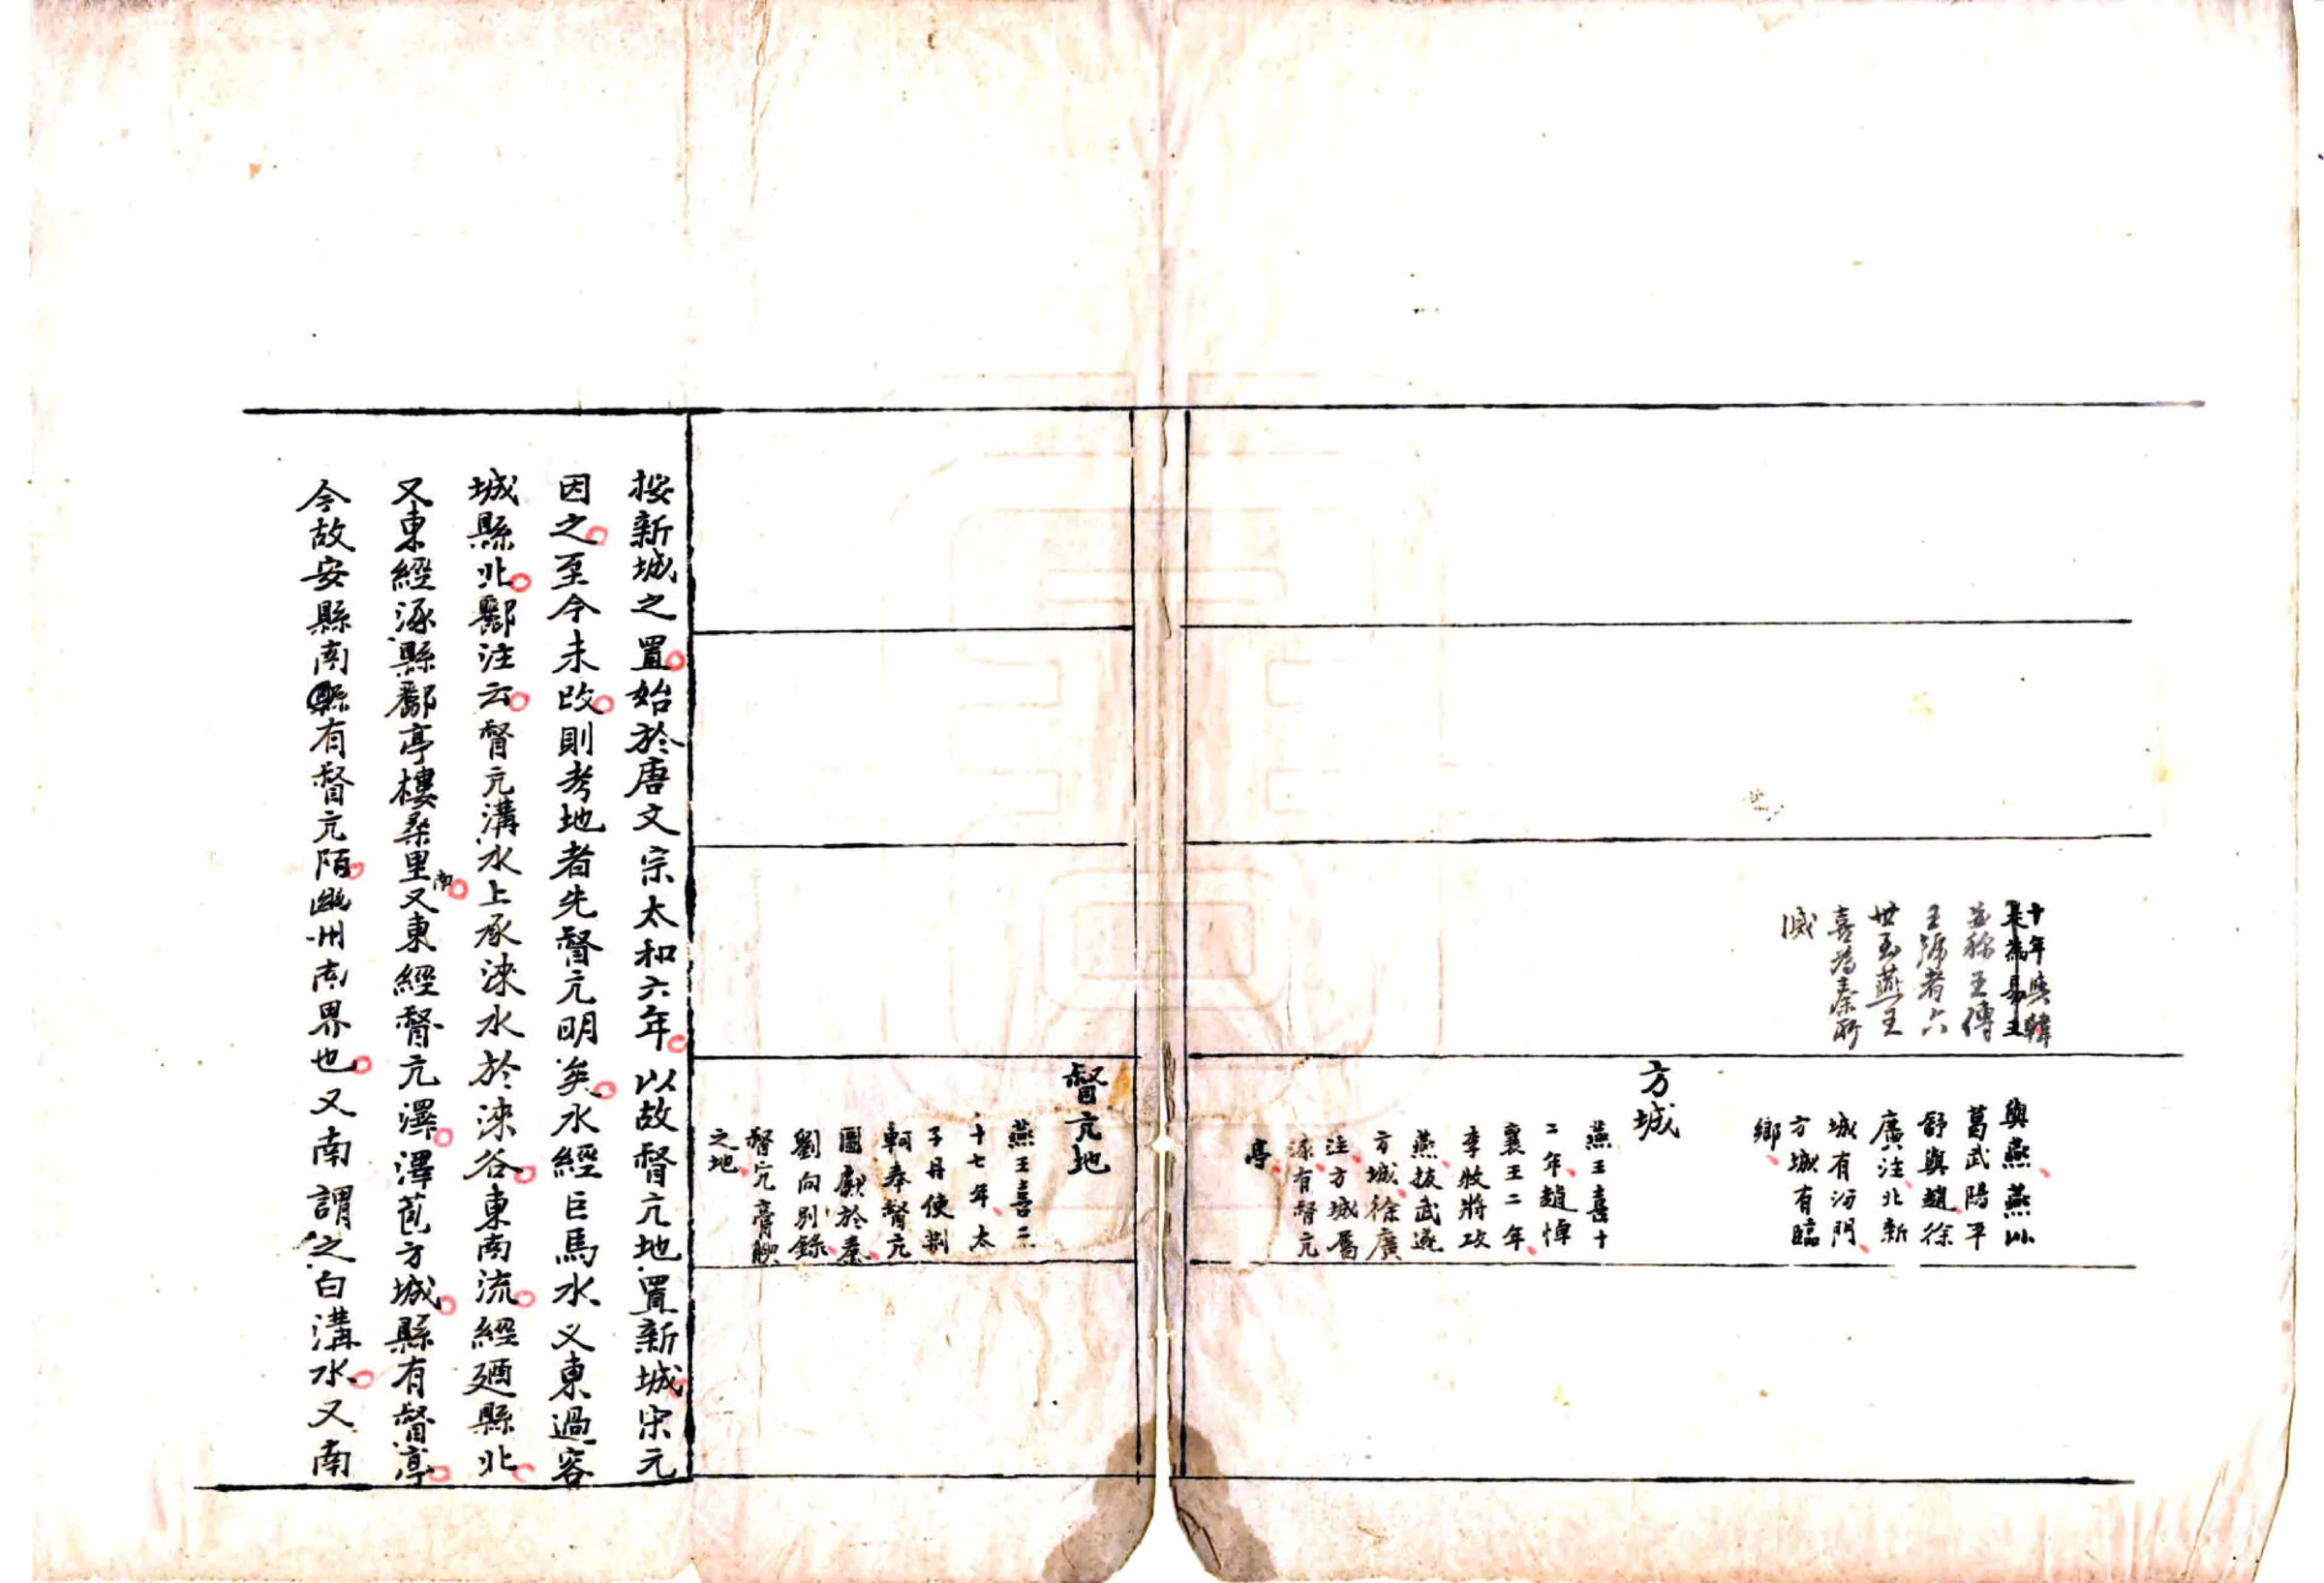 十年與韓
是為易王
並稱王傳
王號者六
世至燕王
喜為秦所
滅
與燕燕以
葛武陽平
舒與趙徐
廣注北新
城有汾門
方城有臨
鄉
方城
燕王喜十
二年趙悼
襄王二年
李牧將攻
燕拔武遂
方城徐廣
注方城屬
涿有督亢
亭
督亢地
燕王喜二
十七年太
子丹使荆
軻奉督亢
圖獻於秦
劉向別錄
督亢膏腴
之地
按新城之置始於唐文宗太和六年以故督亢地置新城宋元
因之至今未改則考地者先督亢明矣水經巨馬水又東過容
城縣北酈注云督亢溝水上承淶水於淶谷東南流經遒縣北
又東經涿縣酈亭樓桑里南又東經督亢澤澤苞方城縣有督亭
今故安縣南縣有督亢陌幽州南界也又南謂之白溝水又南